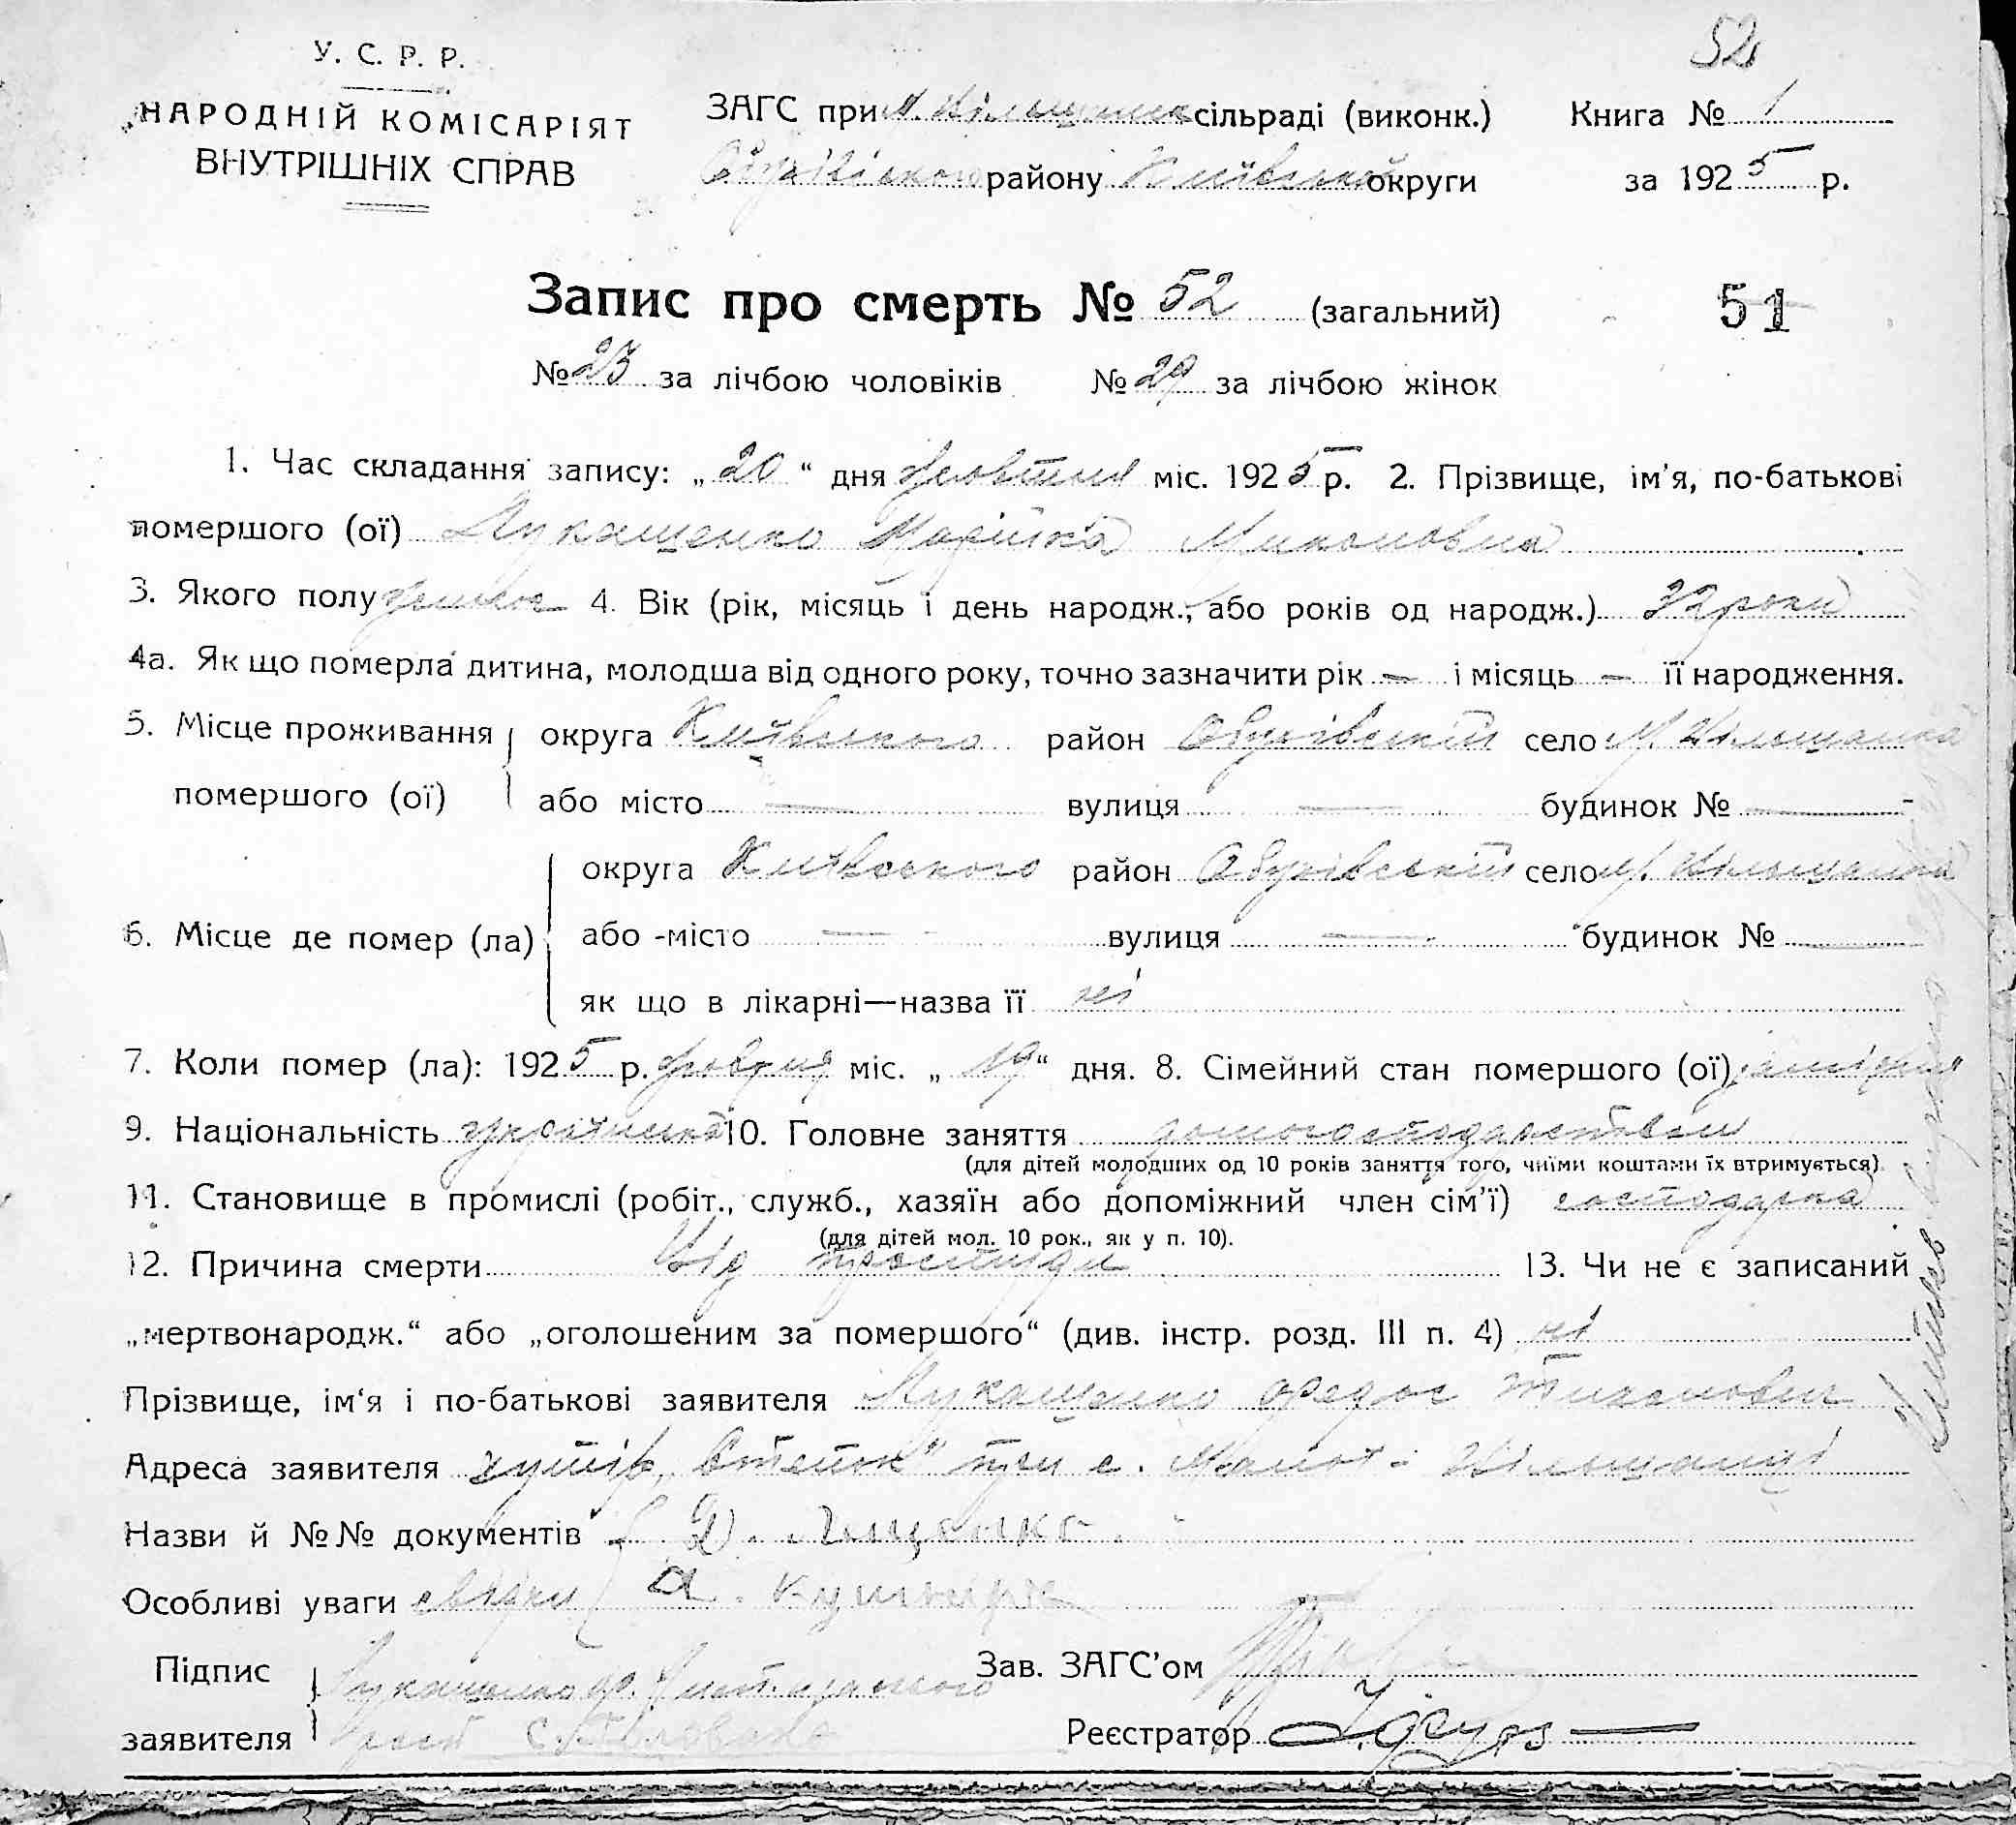 52
У. С. Р. Р.
НАРОДНІЙ КОМІСАРІЯТ
ВНУТРІШНІХ СПРАВ
ЗАГС при М. Вільшанськ сільраді (виконк.)
Обухівського району Київської округи
Книга № 1
за 1925 р.
Запис про смерть № 52 (загальний)
51
№ 23 за лічбою чоловіків № 29 за лічбою жінок
1. Час складання запису: „20“ дня Жовтня міс. 1925 р. 2. Прізвище, ім'я, по-батькові
помершого (ої) Лукашенко Марійка
3. Якого полу 4. Вік (рік, місяць і день народж., або років од народж.) роки
4а. Як що померла дитина, молодша від одного року, точно зазначити рік — і місяць — її народження.
5. Місце проживання округа Київського район Обухівській село М. Вільшанка
помершого (ої) або місто — вулиця — будинок № —
округа Київського район Обухівській село М. Вільшанка
6. Місце де помер (ла) або -місто — вулиця — будинок №
як що в лікарні—назва її ні
7. Коли помер (ла): 1925 р. Жовтня міс. „19“ дня. 8. Сімейний стан помершого (ої) заміжня
9. Національність українка 10. Головне заняття домогосподарством
(для дітей молодших од 10 років заняття того, чиїми коштами їх втримується)
11. Становище в промислі (робіт., служб., хазяїн або допоміжний член сім'ї) господарка
(для дітей мол. 10 рок., як у п. 10).
12. Причина смерти Від простуди 13. Чи не є записаний
„мертвонародж.“ або „оголошеним за помершого“ (див. інстр. розд. III п. 4) ні
Прізвище, ім'я і по-батькові заявителя Лукашенко Федос Тихонович
Адреса заявителя хутір „Степок“ при с. Малої-Вільшанці
Назви й №№ документів
Особливі уваги свідки
Підпис Лукашенко Зав. ЗАГС'ом
заявителя Реєстратор